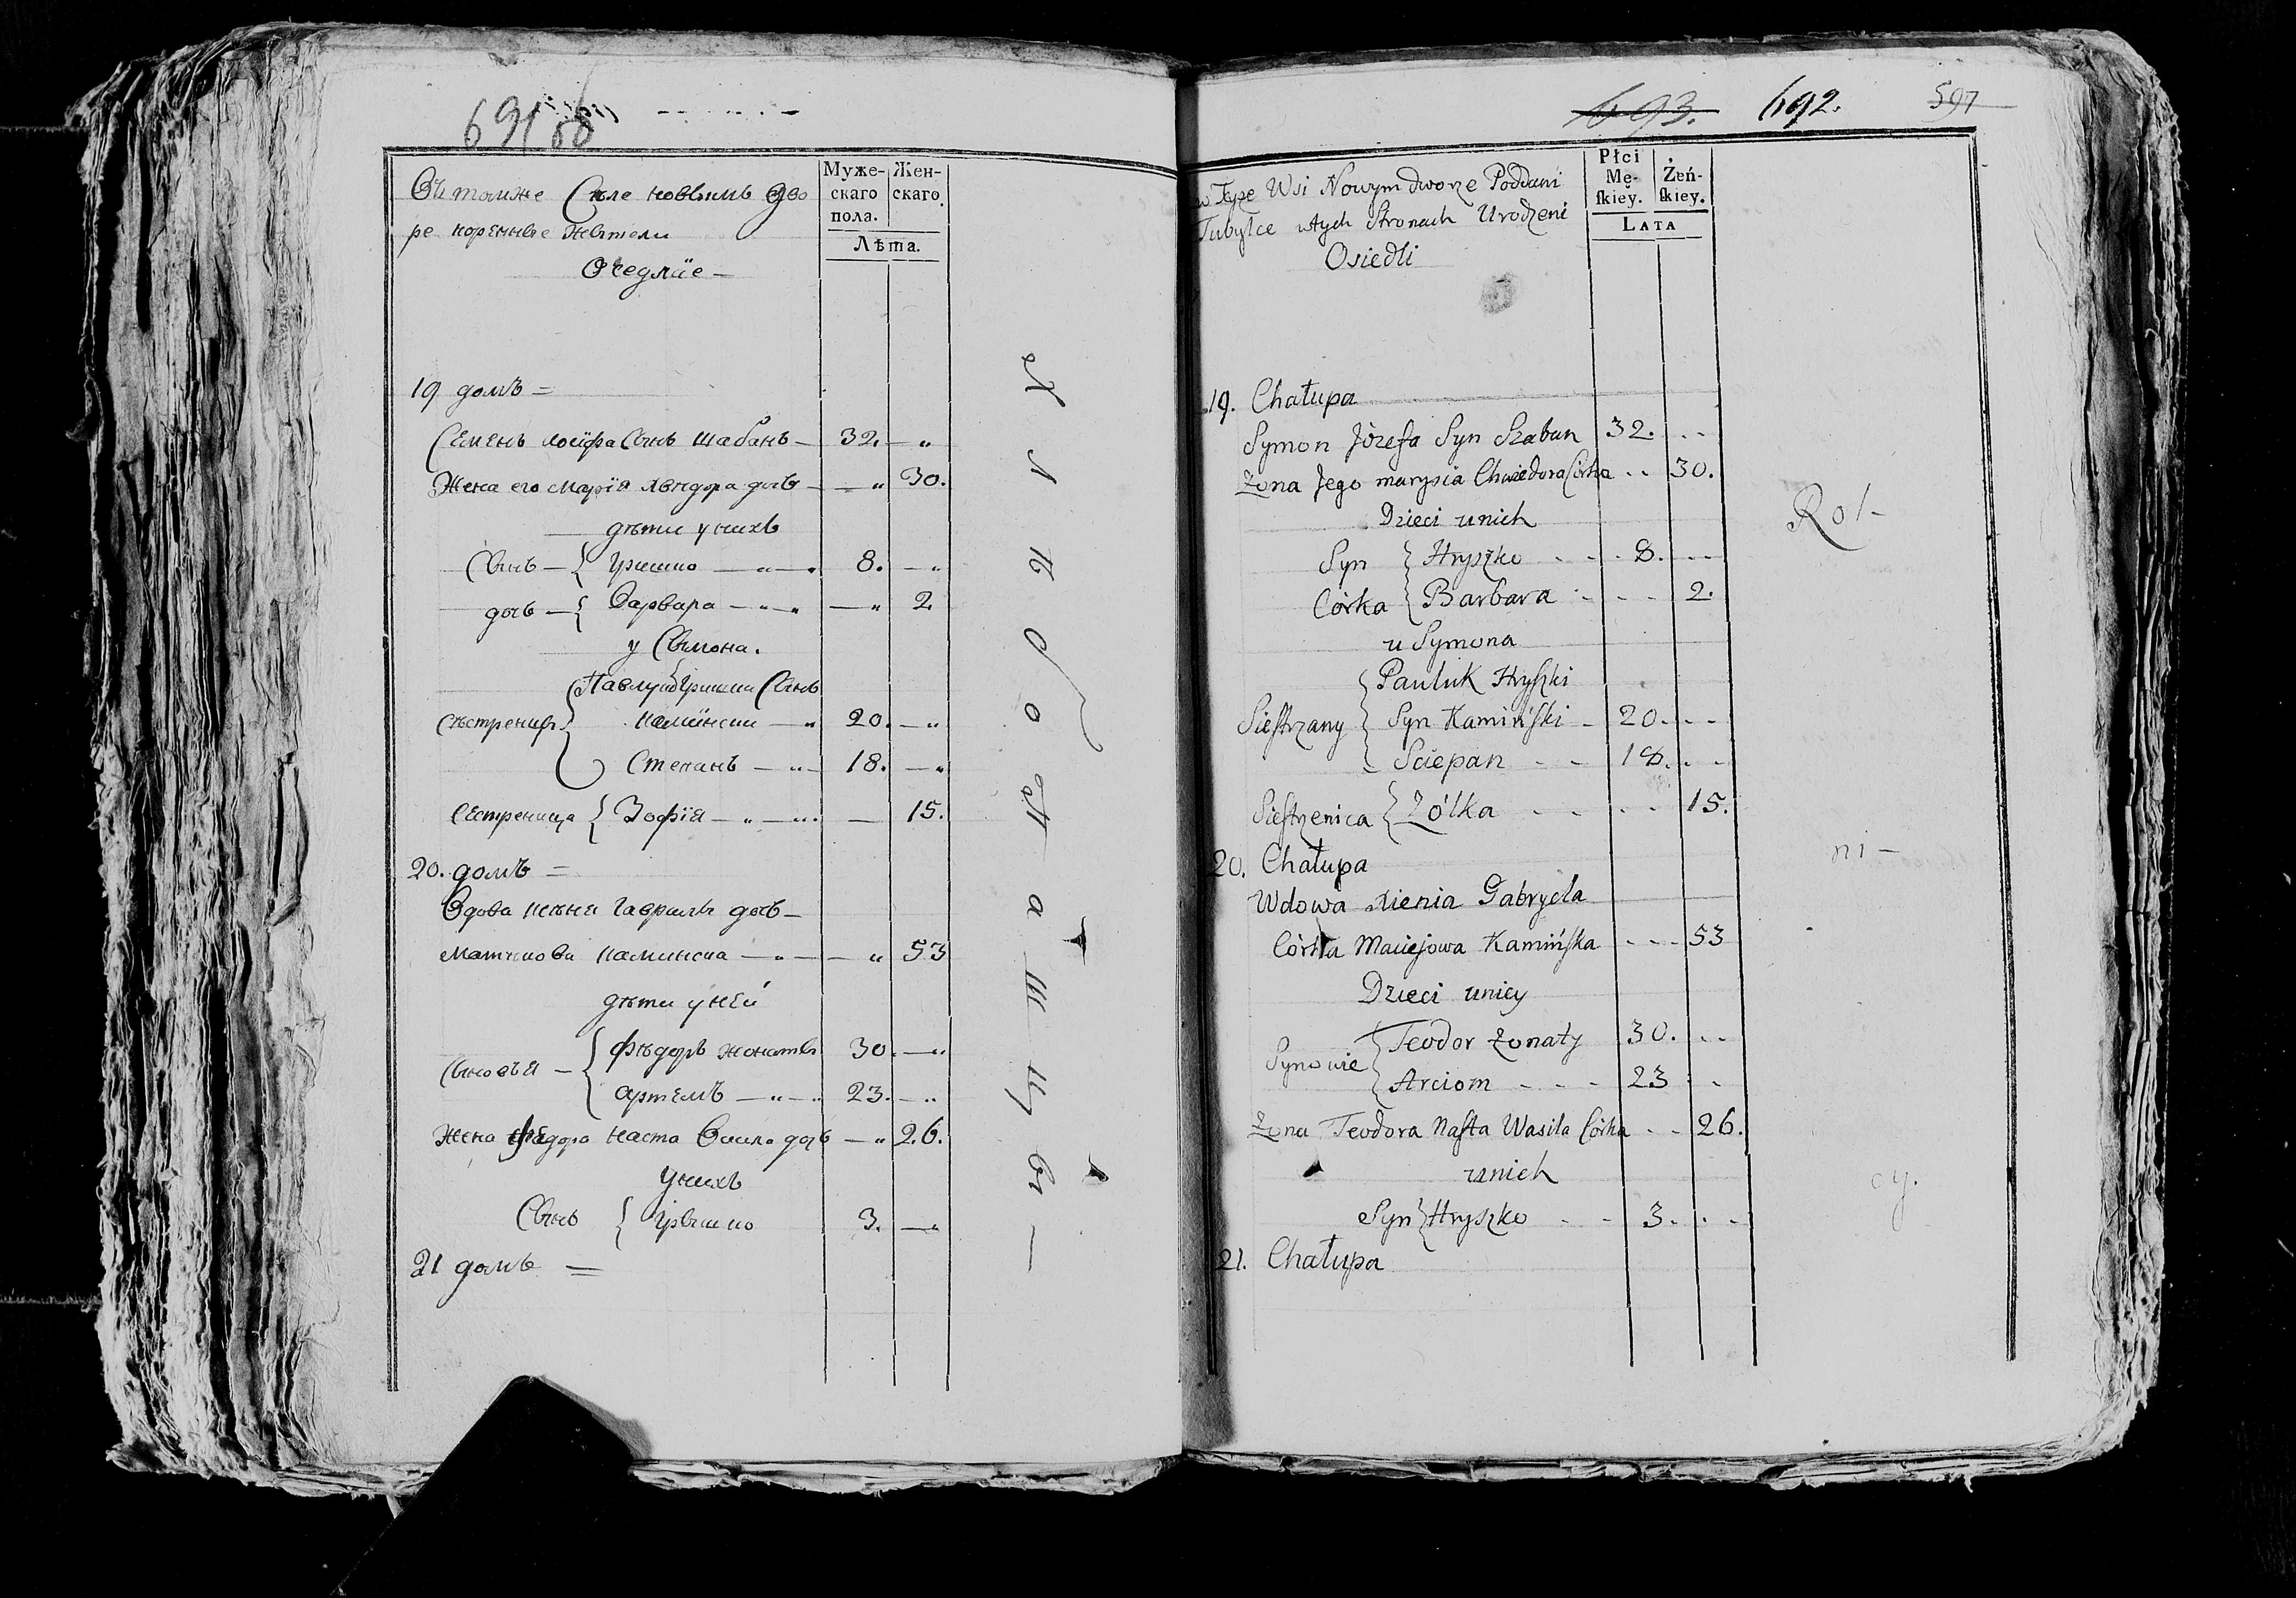 691 об
Муже-
скаго
пола.
Жен-
скаго.
Лѣта.
Въ томже Селе новымъ дво
ре коренные жытели
Оседлые —
19 домъ =
Семенъ иозефа Сынъ шабанъ — 32. — „
Жена его Марія хведора дочь — — „ 30.
дѣти у нихъ
Сынъ — { Гришко — „ — 8. — „
дочь — { Варвара — „ — „ — „ 2
у Сымона.
{ Павлукъ Гришки Сынъ
Сестренцы { камински — „ 20. — „
Степанъ — „ — 18. — „
Сестреница { Зофія — „ — „ — 15.
20. домъ =
Вдова ксеня Гаврила дочь —
Матысова каминска — „ — — „ 53
дѣти у ней
Сыновья — { Фѣдоръ жонаты 30. — „
Артемъ — „ — „ 23. — „
Жена Федора наста Василя дочь — „ 26.
У нихъ
Сынъ { Грышко 3. — „
21 домъ =
Х л ѣ б о п а ш ц ы —
693. 692. 597
Płci
Mę-
ſkiey.
Żeń-
ſkiey.
LATA
w Teyże Wsi Nowym dworze Poddani
Tubylce w tych Stronach Urodzeni
Osiedli
19. Chałupa
Symon Józefa Syn Szaban 32. . .
Żona Jego marysia Chwiedora Córka . . 30.
Dzieci u nich
Syn { Hryszko . . . 8. . .
Córka { Barbara . . . 2.
u Symona
{ Pauluk Hryſzki
Sieſtrzany { Syn Kamińſki - 20. . .
Sciepan - - 18. . .
Sieſtrzenica { Zólka - - . . 15.
20. Chałupa
Wdowa Xienia Gabryela
Córka Maciejowa Kamińſka . . . 53
Dzieci u niey
Synowie { Teodor żonaty 30. . .
Arciom - - - 23 . .
Żona Teodora Naſta Wasila Córka . . 26.
u nich
Syn { Hryszko - - 3. . .
21. Chałupa
Rol-
ni-
cy.